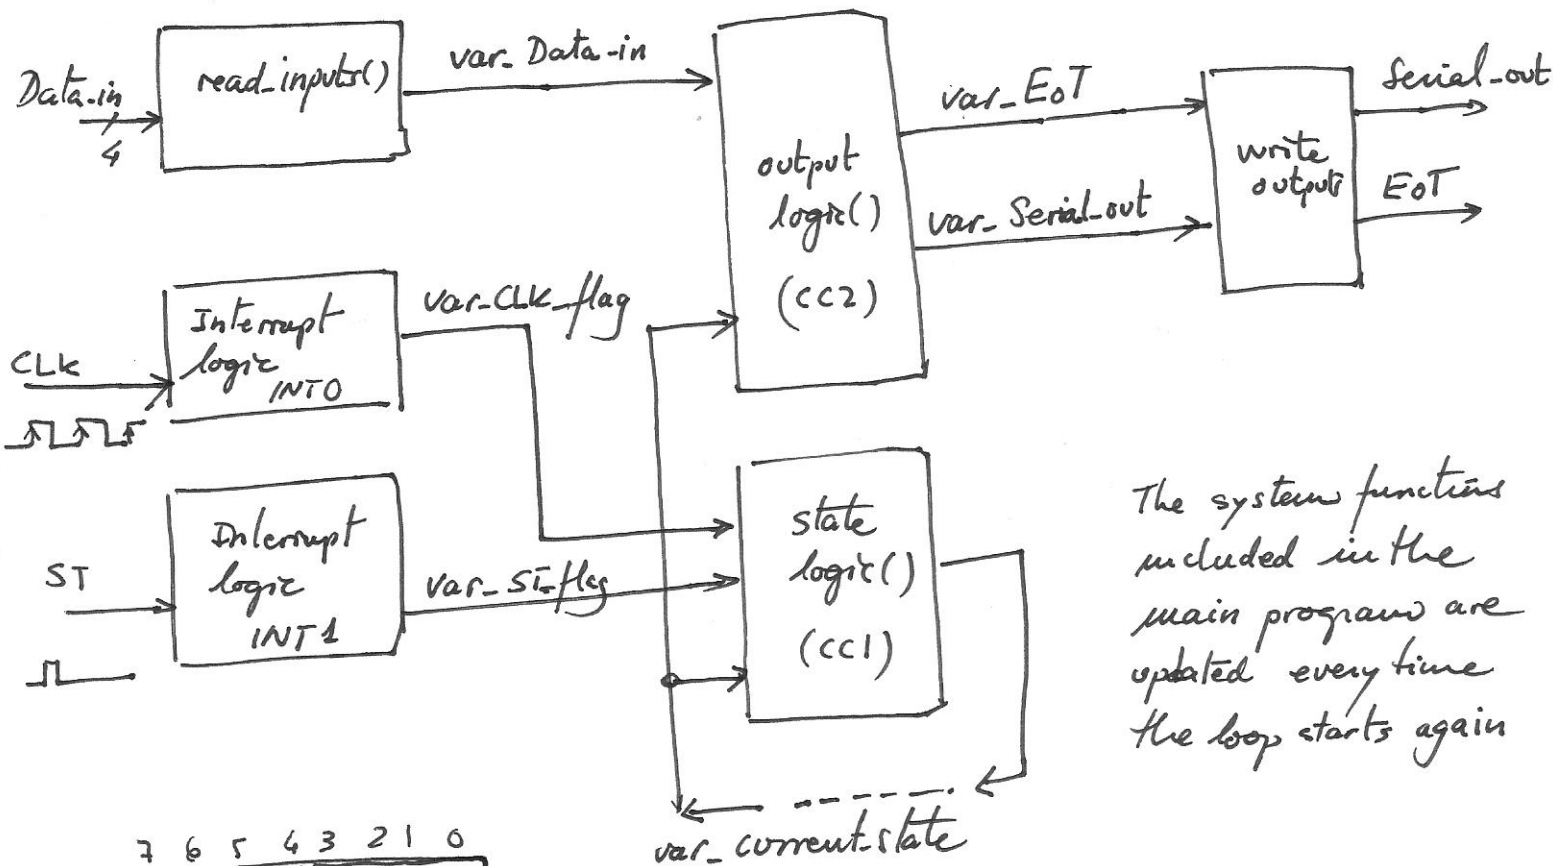 Data_in
4
read_inputs()
var_Data_in
output
logic()
(CC2)
var_EoT
var_Serial_out
write
outputs
Serial_out
EoT
CLK
Interrupt
logic
INT0
var_CLK_flag
ST
Interrupt
logic
INT1
var_ST_flag
state
logic()
(CC1)
var_current_state
The system functions
included in the
main program are
updated every time
the loop starts again
7 6 5 4 3 2 1 0